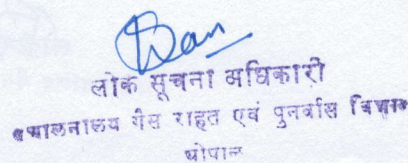 लोक सूचना अधिकारी
संचालनालय गैस राहत एवं पुनर्वास विभाग
भोपाल